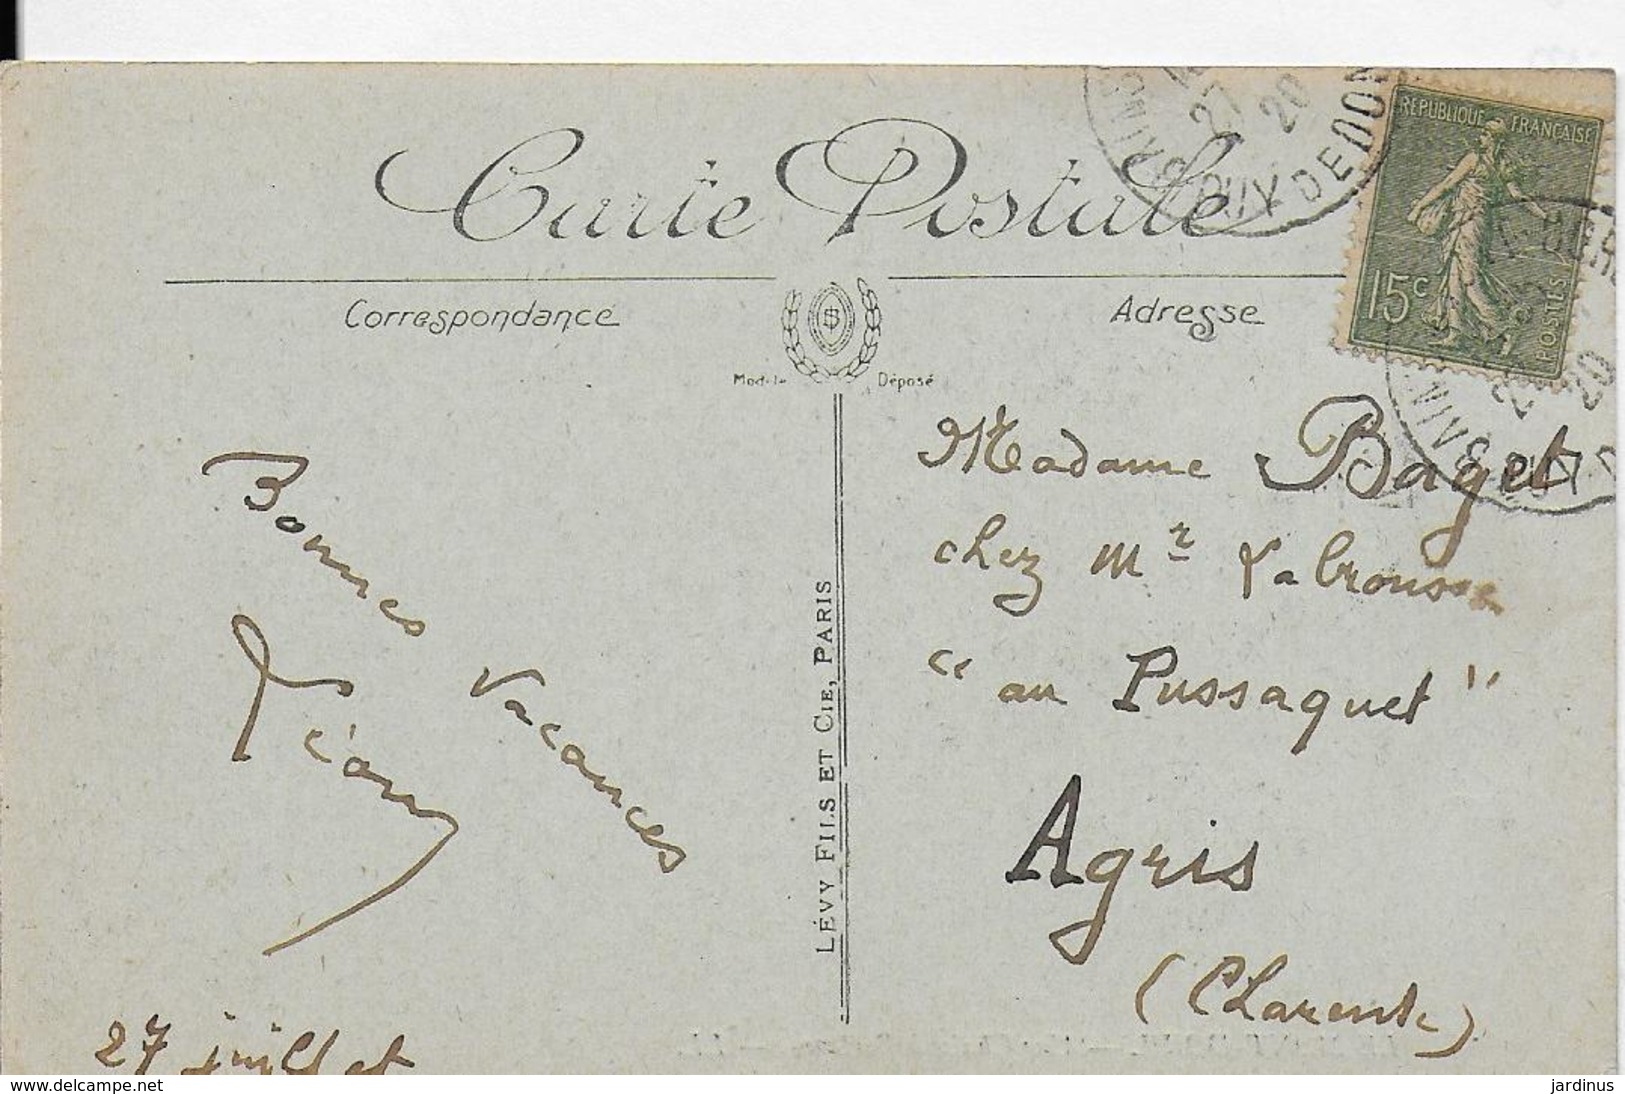 Carte Postale
Correspondance
Adresse
Modèle Déposé
RÉPUBLIQUE FRANÇAISE
15c
POSTES
27
20
PUY DE DOM
20
Madame Baget
chez Mr Labrousse
"au Pussaquet"
Agris
(Charente)
Bonnes Vacances
Léony
27 juillet
LÉVY FILS ET CIE, PARIS
www.delcampe.net
jardinus